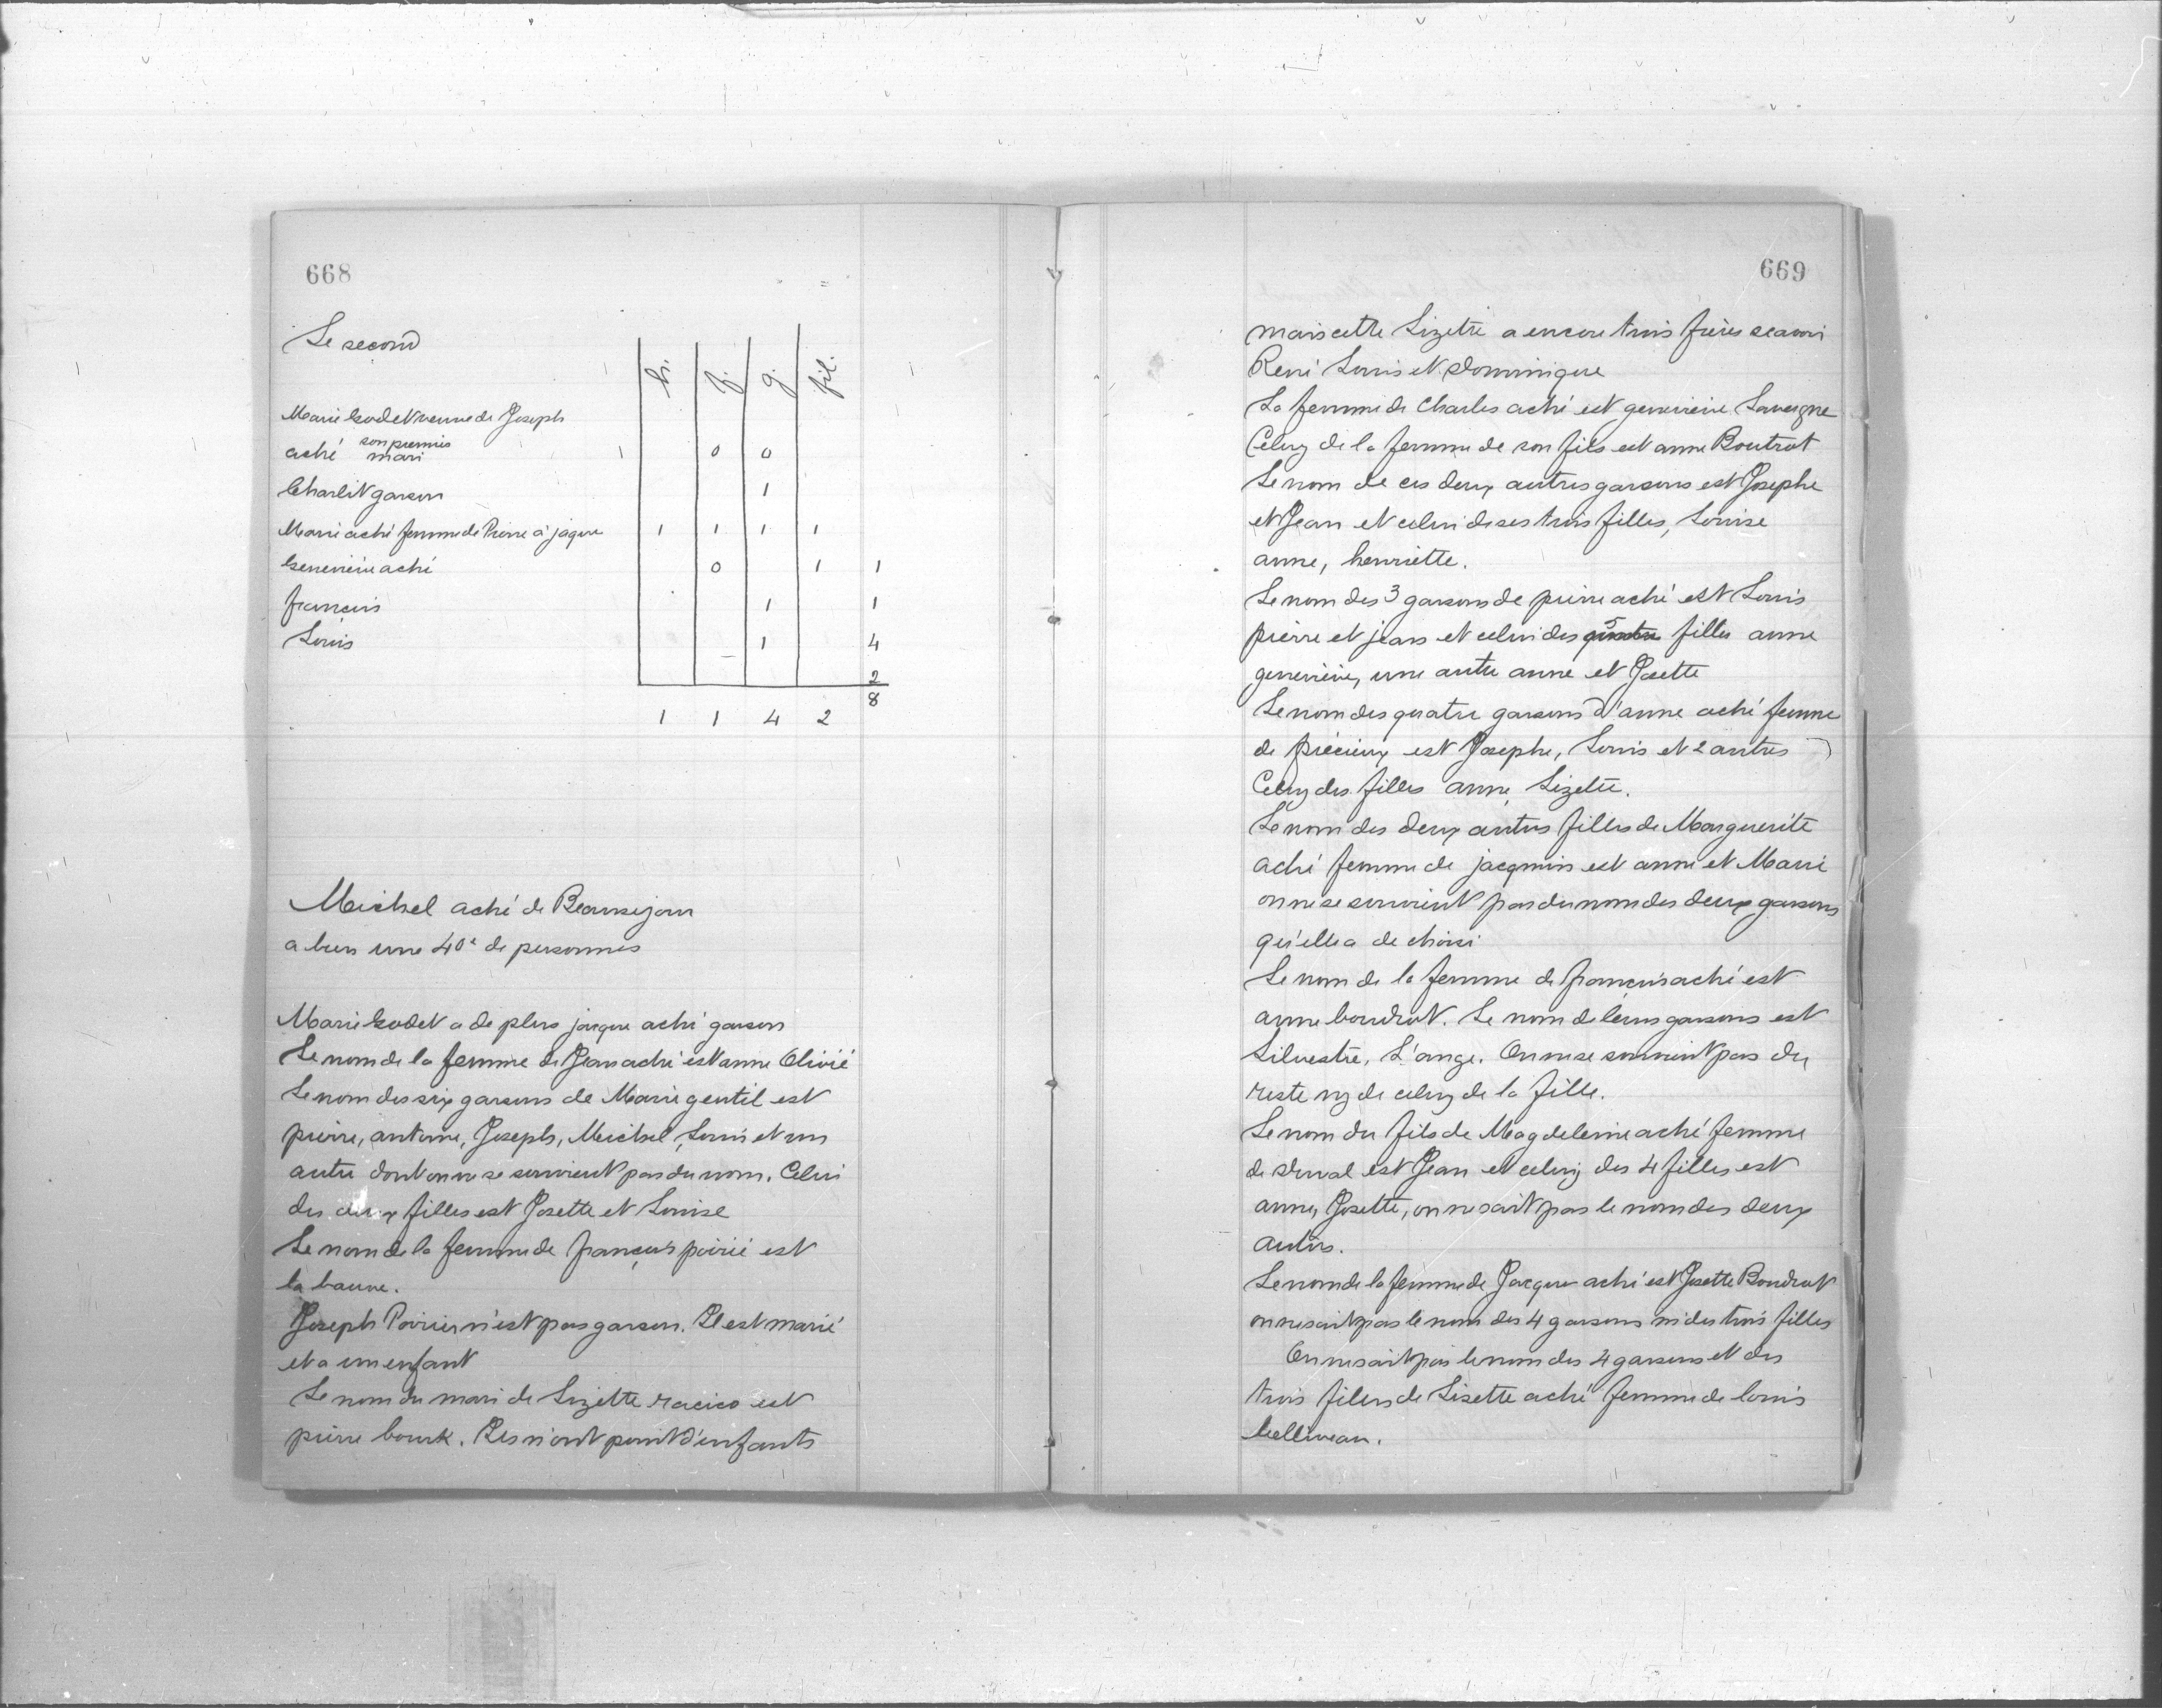 668
Le second
h. f. g. fil.
Marie Godet veuve de Joseph
aché son premier mari 0 0
Charlit garson 1
Marie aché femme de Pierre à jaque 1 1 1 1
Genevieve aché 0 1 1
françois 1 1
Louis 1 4
2
8
1 1 4 2
Michel aché de Beausejour
a bien une 40e de personnes
Marie Godet a de plus jacque aché garson
Le nom de la femme de Jean aché est anne Olivié
Le nom des six garsons de Marie gentil est
pierre, antoine, Joseph, Michel, Louis et un
autre dont on ne se souvient pas du nom. Celui
des deux filles est Josette et Louise
Le nom de la femme de françois poirié est
la baune.
Joseph Poirier n'est pas garson. Il est marié
et a un enfant
Le nom du mari de Lizette racico est
pierre bourk. Ils n'ont point d'enfants
669
mais cette Lizette a encore trois frères scavoir
René Louis et Dominique
La femme de Charles aché est genevieve Lavergne
Celuy de la femme de son fils est anne Boutrot
Le nom de ces deux autres garsons est Josephe
et Jean et celui de ses trois filles, Louise
anne, henriette.
Le nom des 3 garsons de pierre aché est Louis
pierre et jean et celui des quatre 5 filles anne
genevieve, une autre anne et Josette
Le nom des quatre garsons d'anne aché femme
de précieux est Josephe, Louis et 2 autres
Celuy des filles anne, Lizette.
Le nom des deux autres filles de Marguerite
aché femme de jacquemin est anne et Marie
on ne se souvient pas du nom des deux garsons
qu'elle a de choisi
Le nom de la femme de françois aché est
anne boudrot. Le nom de leurs garsons est
Silvestre, L'ange. On ne se souvient pas du
reste ny de celuy de la fille.
Le nom du fils de Magdeleine aché femme
de Duval est Jean et celuy des 4 filles est
anne, Josette, on ne sait pas le nom des deux
autres.
Le nom de la femme de Jacque aché est Josette Boudrot
on ne sait pas le nom des 4 garsons ni des trois filles
On ne sait pas le nom des 4 garsons et des
trois filles de Lisette aché femme de louis
belliveau.